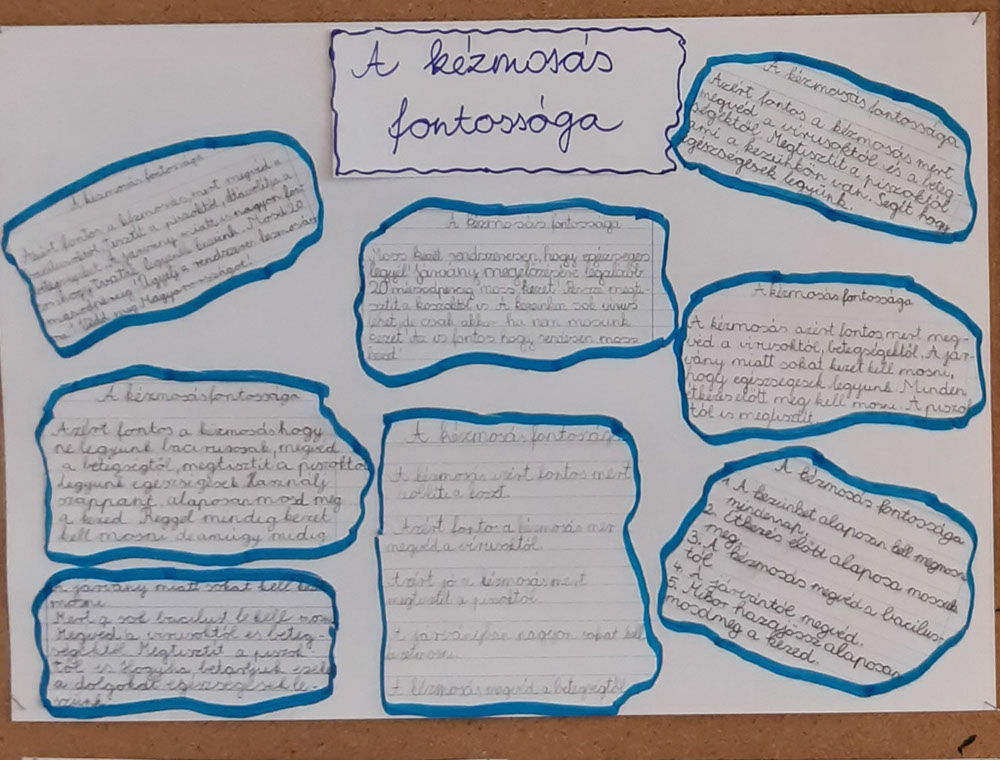 A kézmosás
fontossága
A kézmosás fontossága
Azért fontos a kézmosás mert
megvéd a vírusoktól és a beteg-
ségektől. Megtisztít a piszoktól
ami a kezünkön van. Segít hogy
egészségesek legyünk.
A kézmosás fontossága
Azért fontos a kézmosás, mert megvéd a
tisztít a piszoktól, eltávolítja a
A járvány miatt is nagyon font
legyünk Mosd 20
másodpercig! Ügyelj a rendszeres kézmosás
ra! Védd meg Magyarországot!
A Kézmosás fontossága
Moss kezet rendszeresen, hogy egészséges
legyél! Járvány megelőzésére legalább
20 másodpercig moss kezet! Persze megti-
sztít a kosztól is. A kezünkön sok vírus
lehet de csak akkor ha nem mosunk
kezet! Az is fontos hogy rendesen moss
kezet!
A kézmosás fontossága
A kézmosás azért fontos mert meg-
véd a vírusoktól, betegségektől. A jár-
vány miatt sokat kezet kell mosni,
hogy egészségesek legyünk. Minden
étkezés előtt meg kell mosni. A piszok
tól is megtisztít.
A kézmosás fontossága
Azért fontos a kézmosás, hogy
ne legyünk bacirussak, megvéd
a betegségtől, megtisztít a piszoktól
legyünk egészségesek. Használj
szappant, alaposan mosd meg
a kezed. Reggel mindig kezet
kell mosni de amúgy midig
A kézmosás fontossága
A kézmosás azért fontos mert
a koszt.
Azért fontos a kézmosás mer
megvéd a vírusoktól.
Azért jó a kézmosás mert
megtisztít a piszoktól
A járványban nagyon sokat kell
A kézmosás megvéd a betegségtől
A kézmosás fontossága
1. A kezünket alaposan kell megmosni
mindennap.
2. Étkezés előtt alaposa mossuk
meg.
3. A kézmosás megvéd a bacilus-
tól.
4. A járvántól megvéd.
5. Mikor hazajössz alaposan
mosdmeg a kezed.
A járvány miatt sokat kell kez
mosni.
Mert a sok bacilust le kell mosn
Megvéd a vírusoktól és beteg-
ségektől. Megtisztít a piszok-
tól is. Hogyha betartjuk ezek
a dolgokat egészségesek le-
szünk.